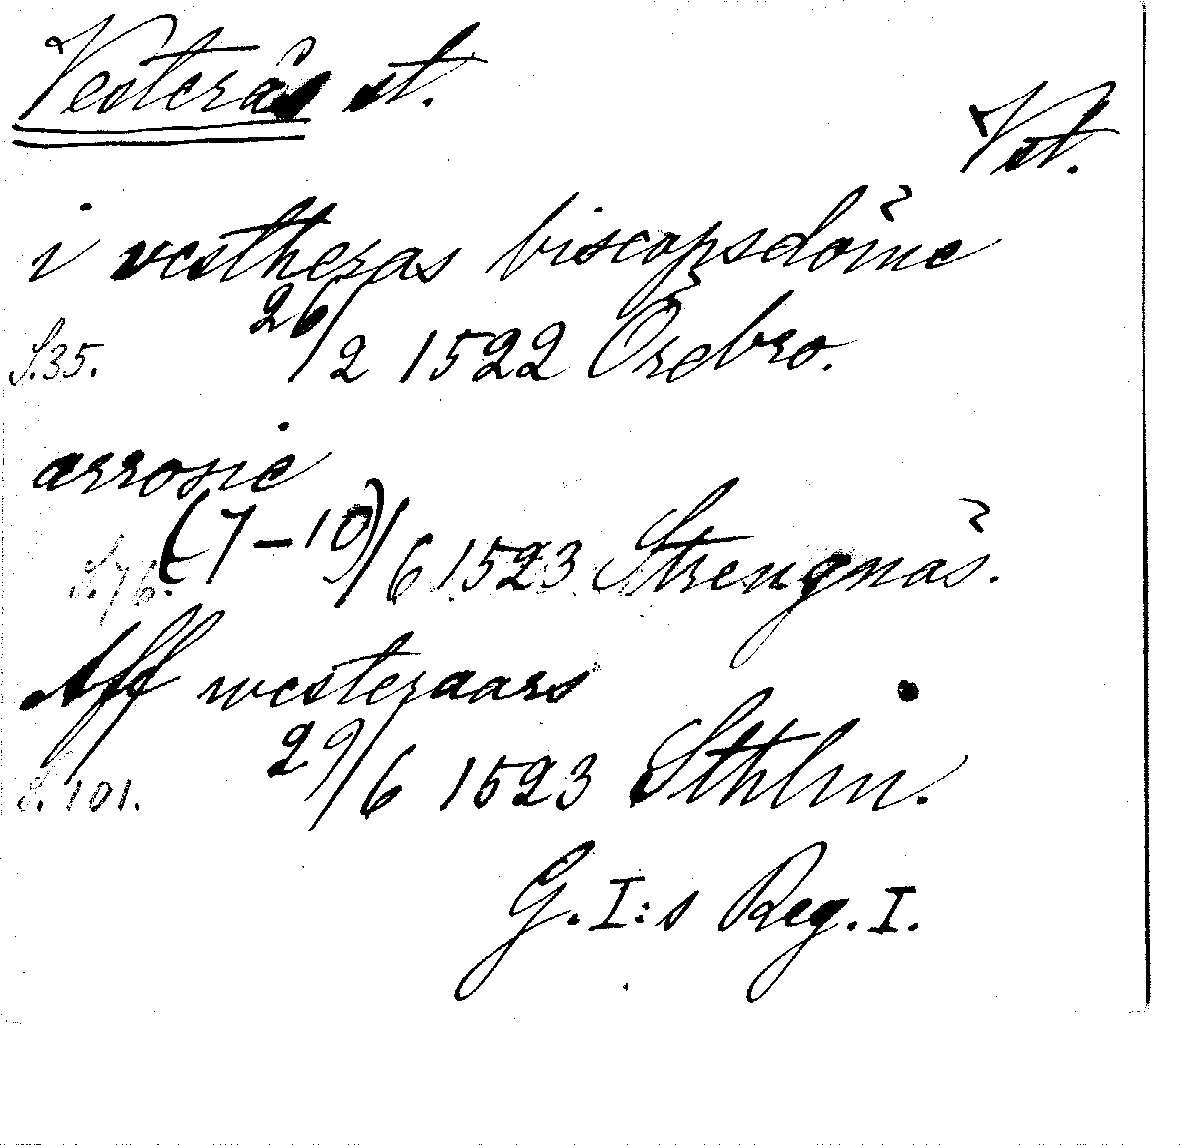 Vesterås st.
Vst.
i vestheras biscopsdöme
S.35. 26/2 1522 Örebro.
arrosie
S.76. (7-10)/6 1523 Strengnäs.
Aff westeraars
S. 101. 29/6 1523 Sthlm.
G. I:s Reg. I.